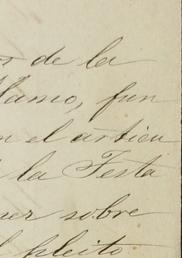 de la
Alamo, fun
en el articu
la Testa
ner sobre
el pleito